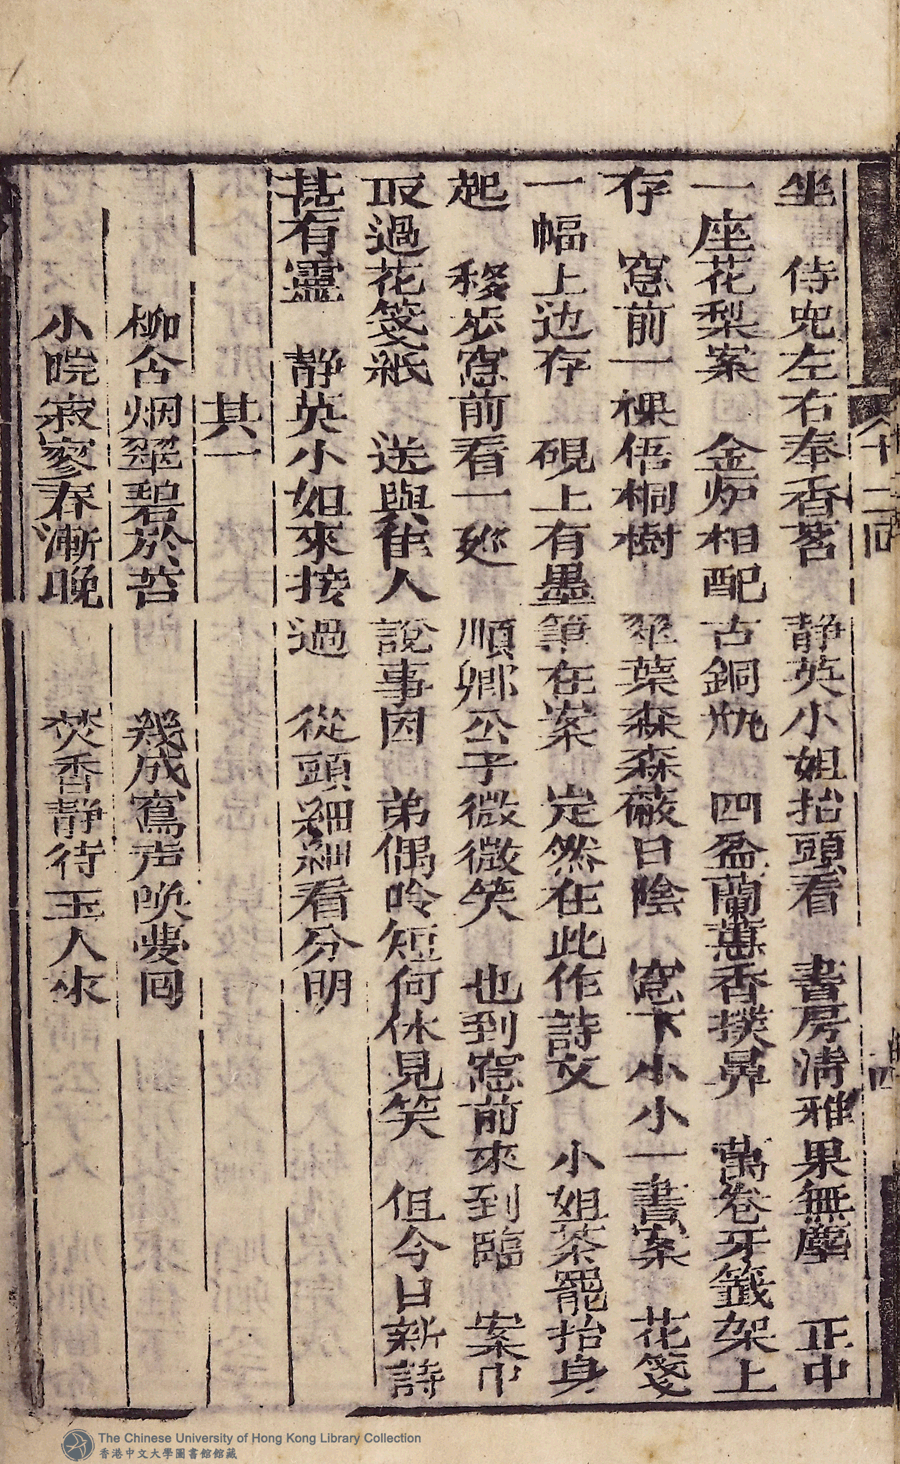 坐　侍兜左右奉香茗　静英小姐抬頭看　書房清雅果無塵　正中
一座花梨案　金炉相配古銅瓶　四盆蘭蕙香撲鼻　萬卷牙籤架上
存　窓前一裸梧桐樹　翠葉森森蔽日陰　窓下小小一書案　花箋
一幅上边存　硯上有墨筆在案　定然在此作詩文　小姐茶罷抬身
起　移步窓前看一廵　順卿公子微微笑　也到窓前來到臨　案巾
取過花箋紙　送與隹人說事因　弟偶吟短何休見笑　但今日新詩
甚有靈　静英小如來接過　從頭細細看分明
其一
柳含烟翠碧於苔　幾成寫声喚夢囘
小院寂寥春漸晚　焚香静待玉人來
十二囘
四
The Chinese University of Hong Kong Library Collection
香港中文大學圖書館館藏